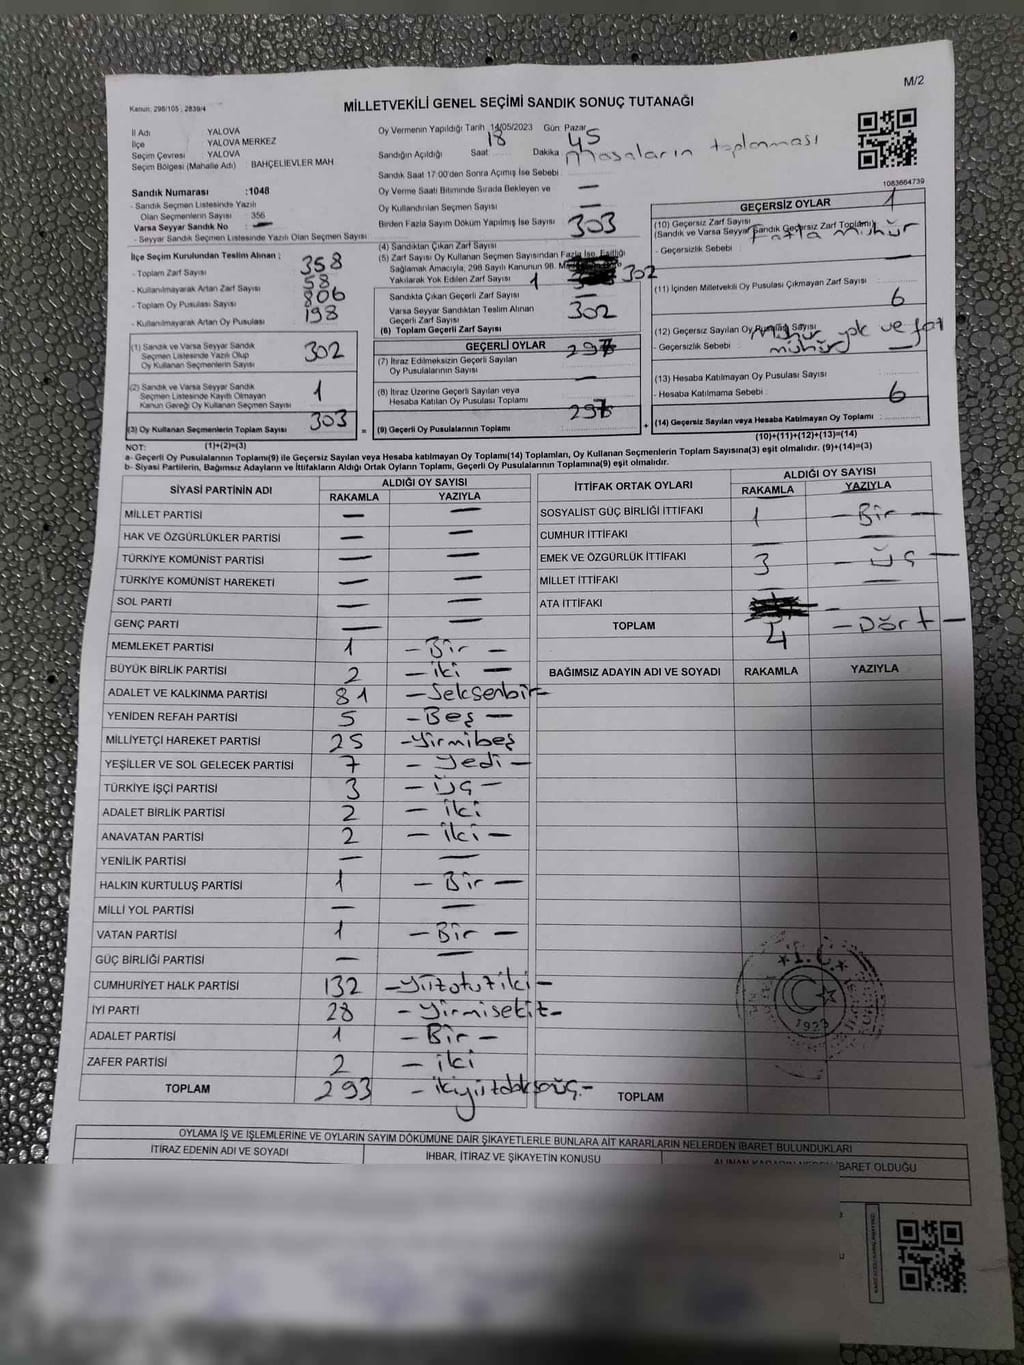 M/2
Kanun: 298/105 ; 2839/4
MİLLETVEKİLİ GENEL SEÇİMİ SANDIK SONUÇ TUTANAĞI
İl Adı YALOVA
İlçe YALOVA MERKEZ
Seçim Çevresi YALOVA
Seçim Bölgesi (Mahalle Adı) BAHÇELİEVLER MAH.
Oy Vermenin Yapıldığı Tarih 14/05/2023 Gün: Pazar
Sandığın Açıldığı Saat 18 Dakika 45
Sandık Saat 17:00'den Sonra Açımış İse Sebebi Masaların toplanması
1083664739
Sandık Numarası :1048
- Sandık Seçmen Listesinde Yazılı
Olan Seçmenlerin Sayısı 356
Varsa Seyyar Sandık No —
- Seyyar Sandık Seçmen Listesinde Yazılı Olan Seçmen Sayısı
İlçe Seçim Kurulundan Teslim Alınan ;
- Toplam Zarf Sayısı 358
- Kullanılmayarak Artan Zarf Sayısı 58
- Toplam Oy Pusulası Sayısı 806
- Kullanılmayarak Artan Oy Pusulası 198
(1) Sandık ve Varsa Seyyar Sandık
Seçmen Listesinde Yazılı Olup
Oy Kullanan Seçmenlerin Sayısı 302
(2) Sandık ve Varsa Seyyar Sandık
Seçmen Listesinde Kayıtlı Olmayan
Kanun Gereği Oy Kullanan Seçmen Sayısı 1
(3) Oy Kullanan Seçmenlerin Toplam Sayısı 303
Oy Verme Saati Bitiminde Sırada Bekleyen ve
Oy Kullandırılan Seçmen Sayısı —
Birden Fazla Sayım Döküm Yapılmış İse Sayısı —
(4) Sandıktan Çıkan Zarf Sayısı 303
(5) Zarf Sayısı Oy Kullanan Seçmen Sayısından Fazla İse, Eşitliği
Sağlamak Amacıyla, 298 Sayılı Kanunun 98.
Yakılarak Yok Edilen Zarf Sayısı
Sandıkta Çıkan Geçerli Zarf Sayısı 1 302
Varsa Seyyar Sandıktan Teslim Alınan
Geçerli Zarf Sayısı —
(6) Toplam Geçerli Zarf Sayısı 302
GEÇERLİ OYLAR
(7) İtiraz Edilmeksizin Geçerli Sayılan
Oy Pusulalarının Sayısı 297
(8) İtiraz Üzerine Geçerli Sayılan veya
Hesaba Katılan Oy Pusulası Toplamı —
(9) Geçerli Oy Pusulalarının Toplamı 297
GEÇERSİZ OYLAR
(10) Geçersiz Zarf Sayısı 1
(Sandık ve Varsa Seyyar Sandık Geçersiz Zarf Toplamı)
- Geçersizlik Sebebi : Fazla mühür
(11) İçinden Milletvekili Oy Pusulası Çıkmayan Zarf Sayısı
(12) Geçersiz Sayılan Oy Pusulası Sayısı 6
- Geçersizlik Sebebi : mühür yok ve
mühür
(13) Hesaba Katılmayan Oy Pusulası Sayısı —
- Hesaba Katılmama Sebebi :
(14) Geçersiz Sayılan veya Hesaba Katılmayan Oy Toplamı 6
(10)+(11)+(12)+(13)=(14)
NOT: (1)+(2)=(3)
a- Geçerli Oy Pusulalarının Toplamı(9) ile Geçersiz Sayılan veya Hesaba katılmayan Oy Toplamı(14) Toplamları, Oy Kullanan Seçmenlerin Toplam Sayısına(3) eşit olmalıdır. (9)+(14)=(3)
b- Siyasi Partilerin, Bağımsız Adayların ve İttifakların Aldığı Ortak Oyların Toplamı, Geçerli Oy Pusulalarının Toplamına(9) eşit olmalıdır.
SİYASİ PARTİNİN ADI ALDIĞI OY SAYISI
RAKAMLA YAZIYLA
MİLLET PARTİSİ — —
HAK VE ÖZGÜRLÜKLER PARTİSİ — —
TÜRKİYE KOMÜNİST PARTİSİ — —
TÜRKİYE KOMÜNİST HAREKETİ — —
SOL PARTİ — —
GENÇ PARTİ — —
MEMLEKET PARTİSİ 1 – Bir –
BÜYÜK BİRLİK PARTİSİ 2 – iki –
ADALET VE KALKINMA PARTİSİ 81 – Seksenbir –
YENİDEN REFAH PARTİSİ 5 – Beş –
MİLLİYETÇİ HAREKET PARTİSİ 25 – Yirmibeş
YEŞİLLER VE SOL GELECEK PARTİSİ 7 – Yedi –
TÜRKİYE İŞÇİ PARTİSİ 3 – Üç –
ADALET BİRLİK PARTİSİ 2 – iki
ANAVATAN PARTİSİ 2 – iki –
YENİLİK PARTİSİ — —
HALKIN KURTULUŞ PARTİSİ 1 – Bir –
MİLLİ YOL PARTİSİ — —
VATAN PARTİSİ 1 – Bir –
GÜÇ BİRLİĞİ PARTİSİ — —
CUMHURİYET HALK PARTİSİ 132 – Yüzotuziki –
İYİ PARTİ 28 – Yirmisekiz –
ADALET PARTİSİ 1 – Bir –
ZAFER PARTİSİ 2 – iki
TOPLAM 293 – ikiyüzdoksanüç –
İTTİFAK ORTAK OYLARI ALDIĞI OY SAYISI
RAKAMLA YAZIYLA
SOSYALİST GÜÇ BİRLİĞİ İTTİFAKI 1 – Bir –
CUMHUR İTTİFAKI — —
EMEK VE ÖZGÜRLÜK İTTİFAKI 3 – Üç –
MİLLET İTTİFAKI — —
ATA İTTİFAKI
TOPLAM 4 – Dört –
BAĞIMSIZ ADAYIN ADI VE SOYADI RAKAMLA YAZIYLA
T.C.
1923
TOPLAM
OYLAMA İŞ VE İŞLEMLERİNE VE OYLARIN SAYIM DÖKÜMÜNE DAİR ŞİKAYETLERLE BUNLARA AİT KARARLARIN NELERDEN İBARET BULUNDUKLARI
İTİRAZ EDENİN ADI VE SOYADI
İHBAR, İTİRAZ VE ŞİKAYETİN KONUSU
ALINAN KARARIN NEDEN İBARET OLDUĞU